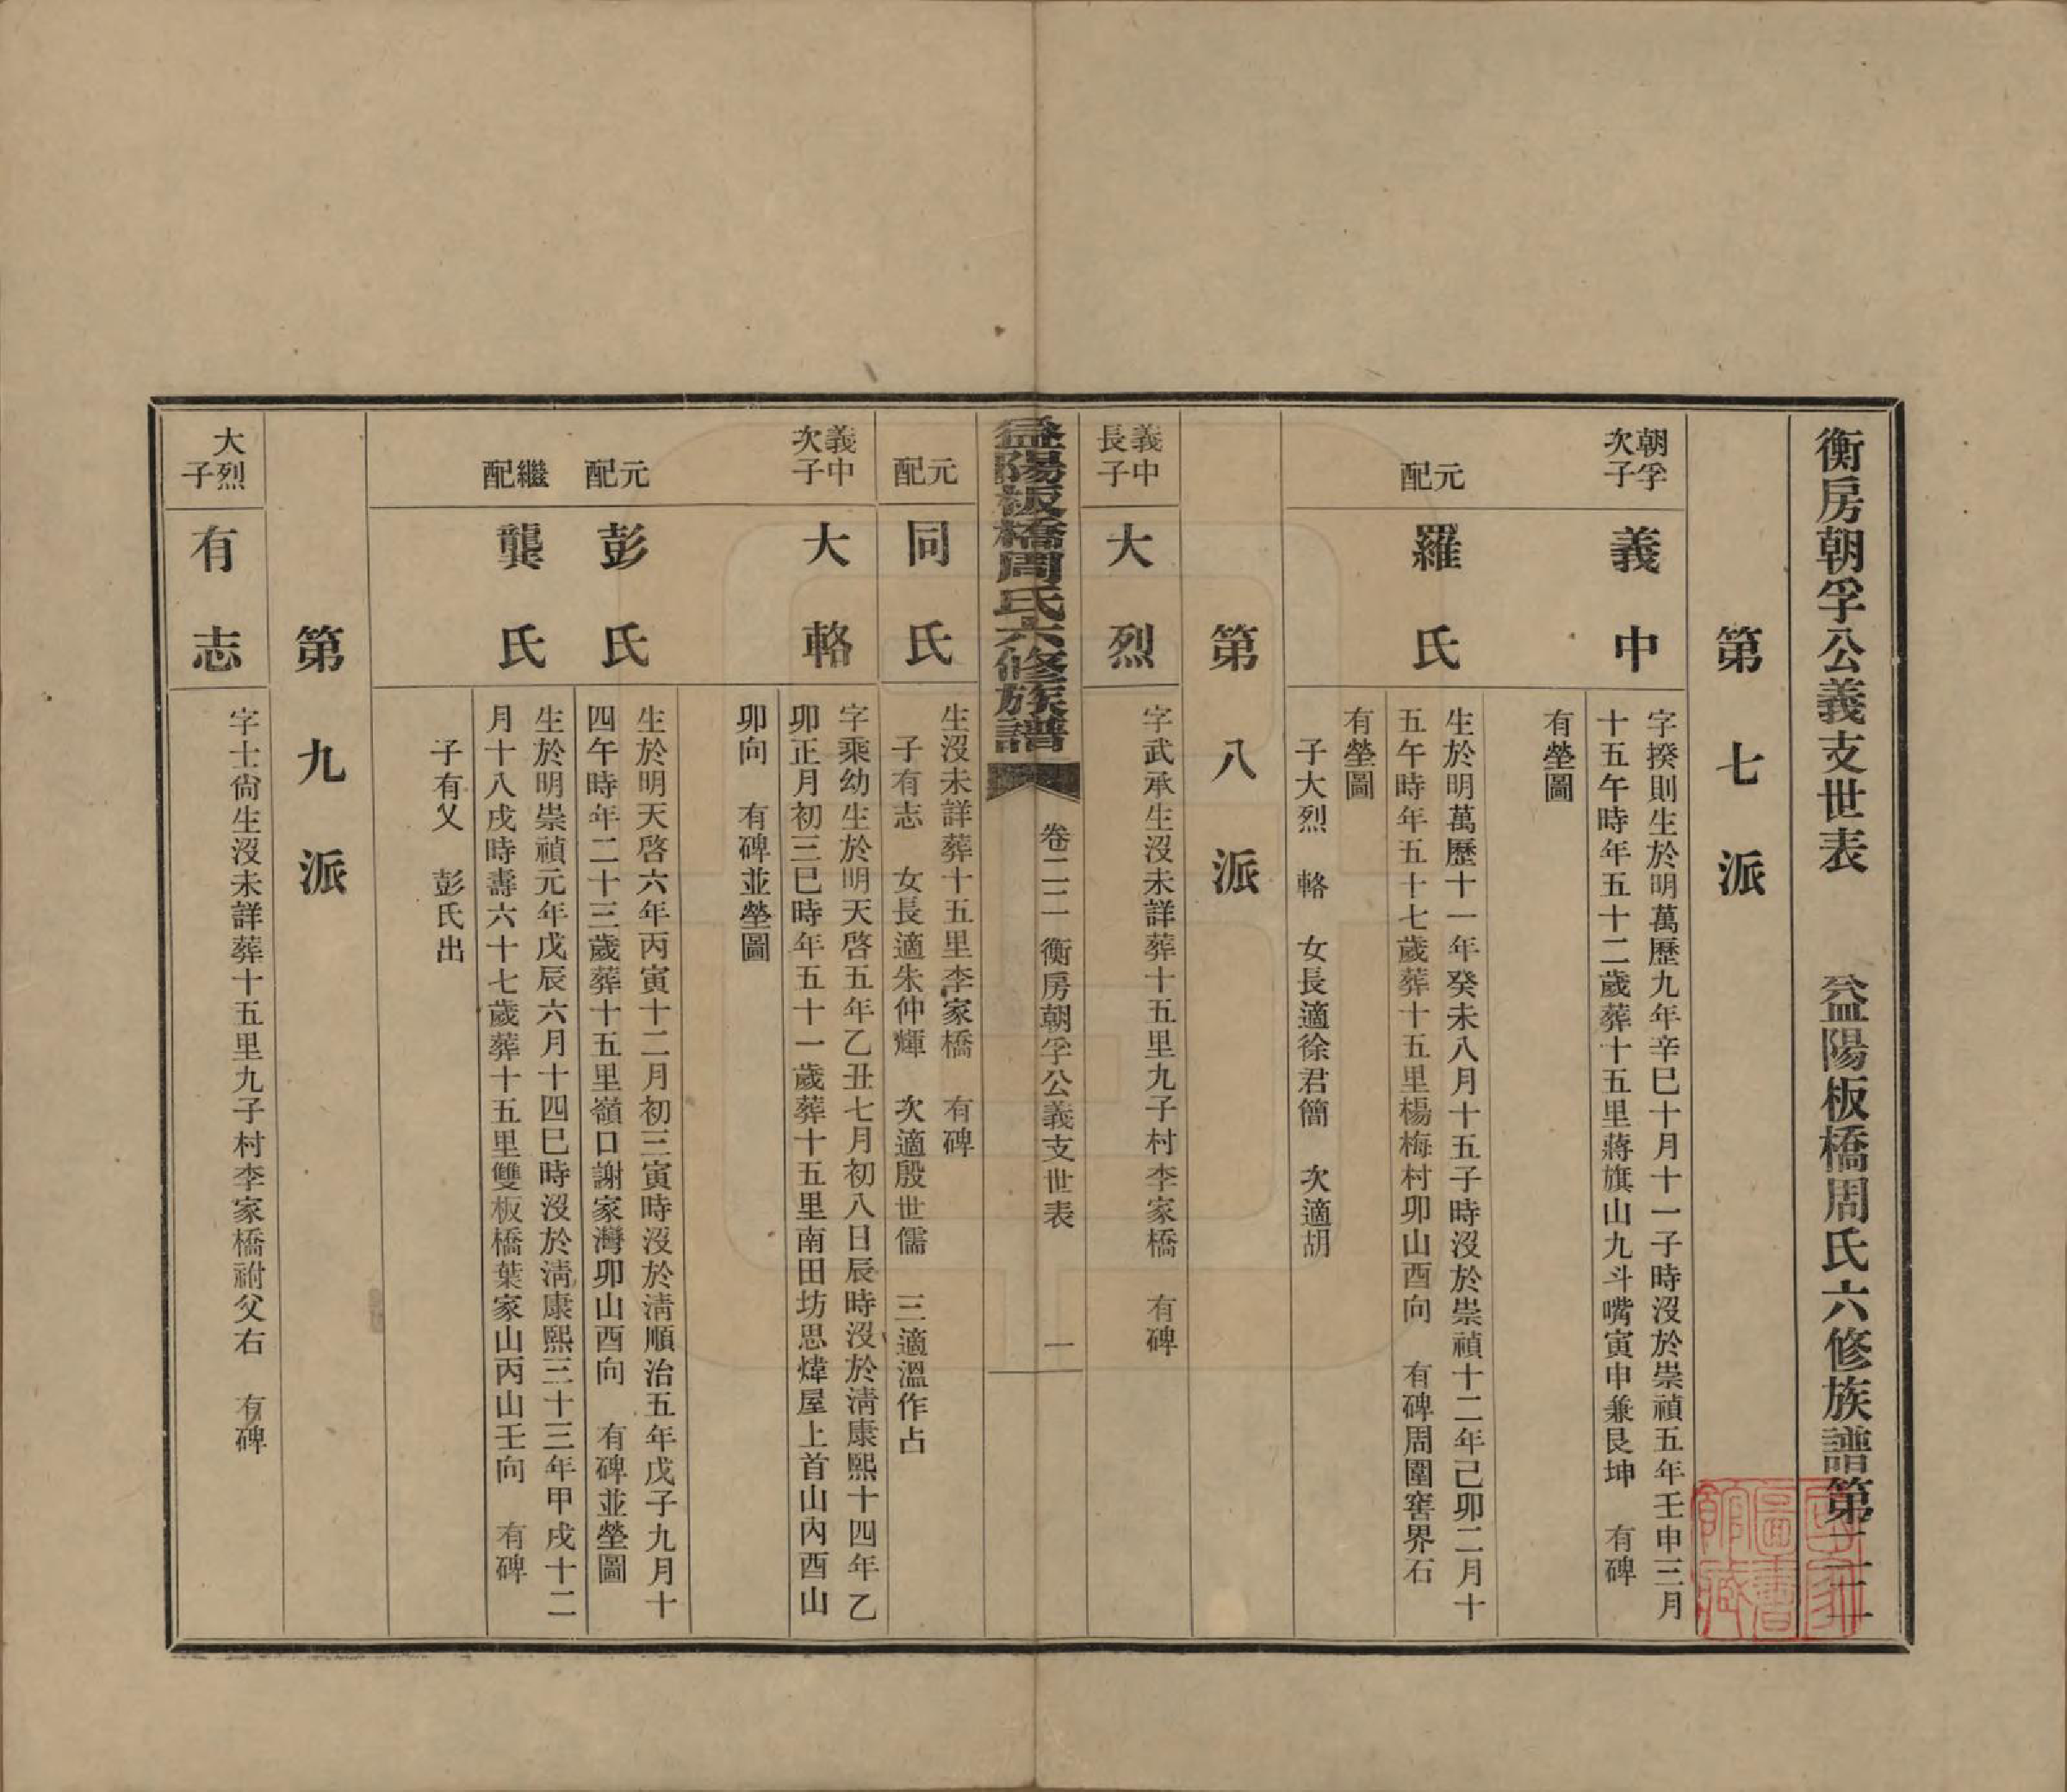 衡房朝孚公義支世表　益陽板橋周氏六修族譜第二二
第七派
朝孚次子
義中
字揆則生於明萬歷九年辛巳十月十一子時沒於崇禎五年壬申三月
十五午時年五十二歲葬十五里蔣旗山九斗嘴寅申兼艮坤　有碑
有塋圖
元配
羅氏
生於明萬歷十一年癸未八月十五子時沒於崇禎十二年己卯二月十
五午時年五十七歲葬十五里楊梅村卯山酉向　有碑周圍窖界石
有塋圖
子大烈　輅　女長適徐君簡　次適胡
第八派
義中長子
大烈
字武承生沒未詳葬十五里九子村李家橋　有碑
益陽板橋周氏六修族譜　卷二二　衡房朝孚公義支世表　一
元配
同氏
生沒未詳葬十五里李家橋　有碑
子有志　女長適朱仲輝　次適殷世儒　三適溫作占
義中次子
大輅
字乘幼生於明天啓五年乙丑七月初八日辰時沒於清康熙十四年乙
卯正月初三巳時年五十一歲葬十五里南田坊思煒屋上首山內酉山
卯向　有碑並塋圖
元配
彭氏
生於明天啓六年丙寅十二月初三寅時沒於清順治五年戊子九月十
四午時年二十三歲葬十五里嶺口謝家灣卯山酉向　有碑並塋圖
繼配
龔氏
生於明崇禎元年戊辰六月十四巳時沒於清康熙三十三年甲戌十二
月十八戌時壽六十七歲葬十五里雙板橋葉家山丙山壬向　有碑
子有乂　彭氏出
第九派
大烈子
有志
字士尙生沒未詳葬十五里九子村李家橋祔父右　有碑